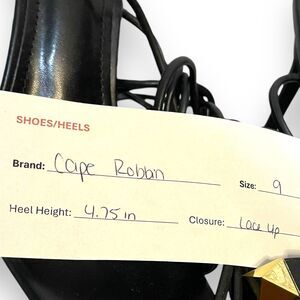 SHOES/HEELS
Brand: Cape Robbin Size: 9
Heel Height: 4.75 in Closure: lace up